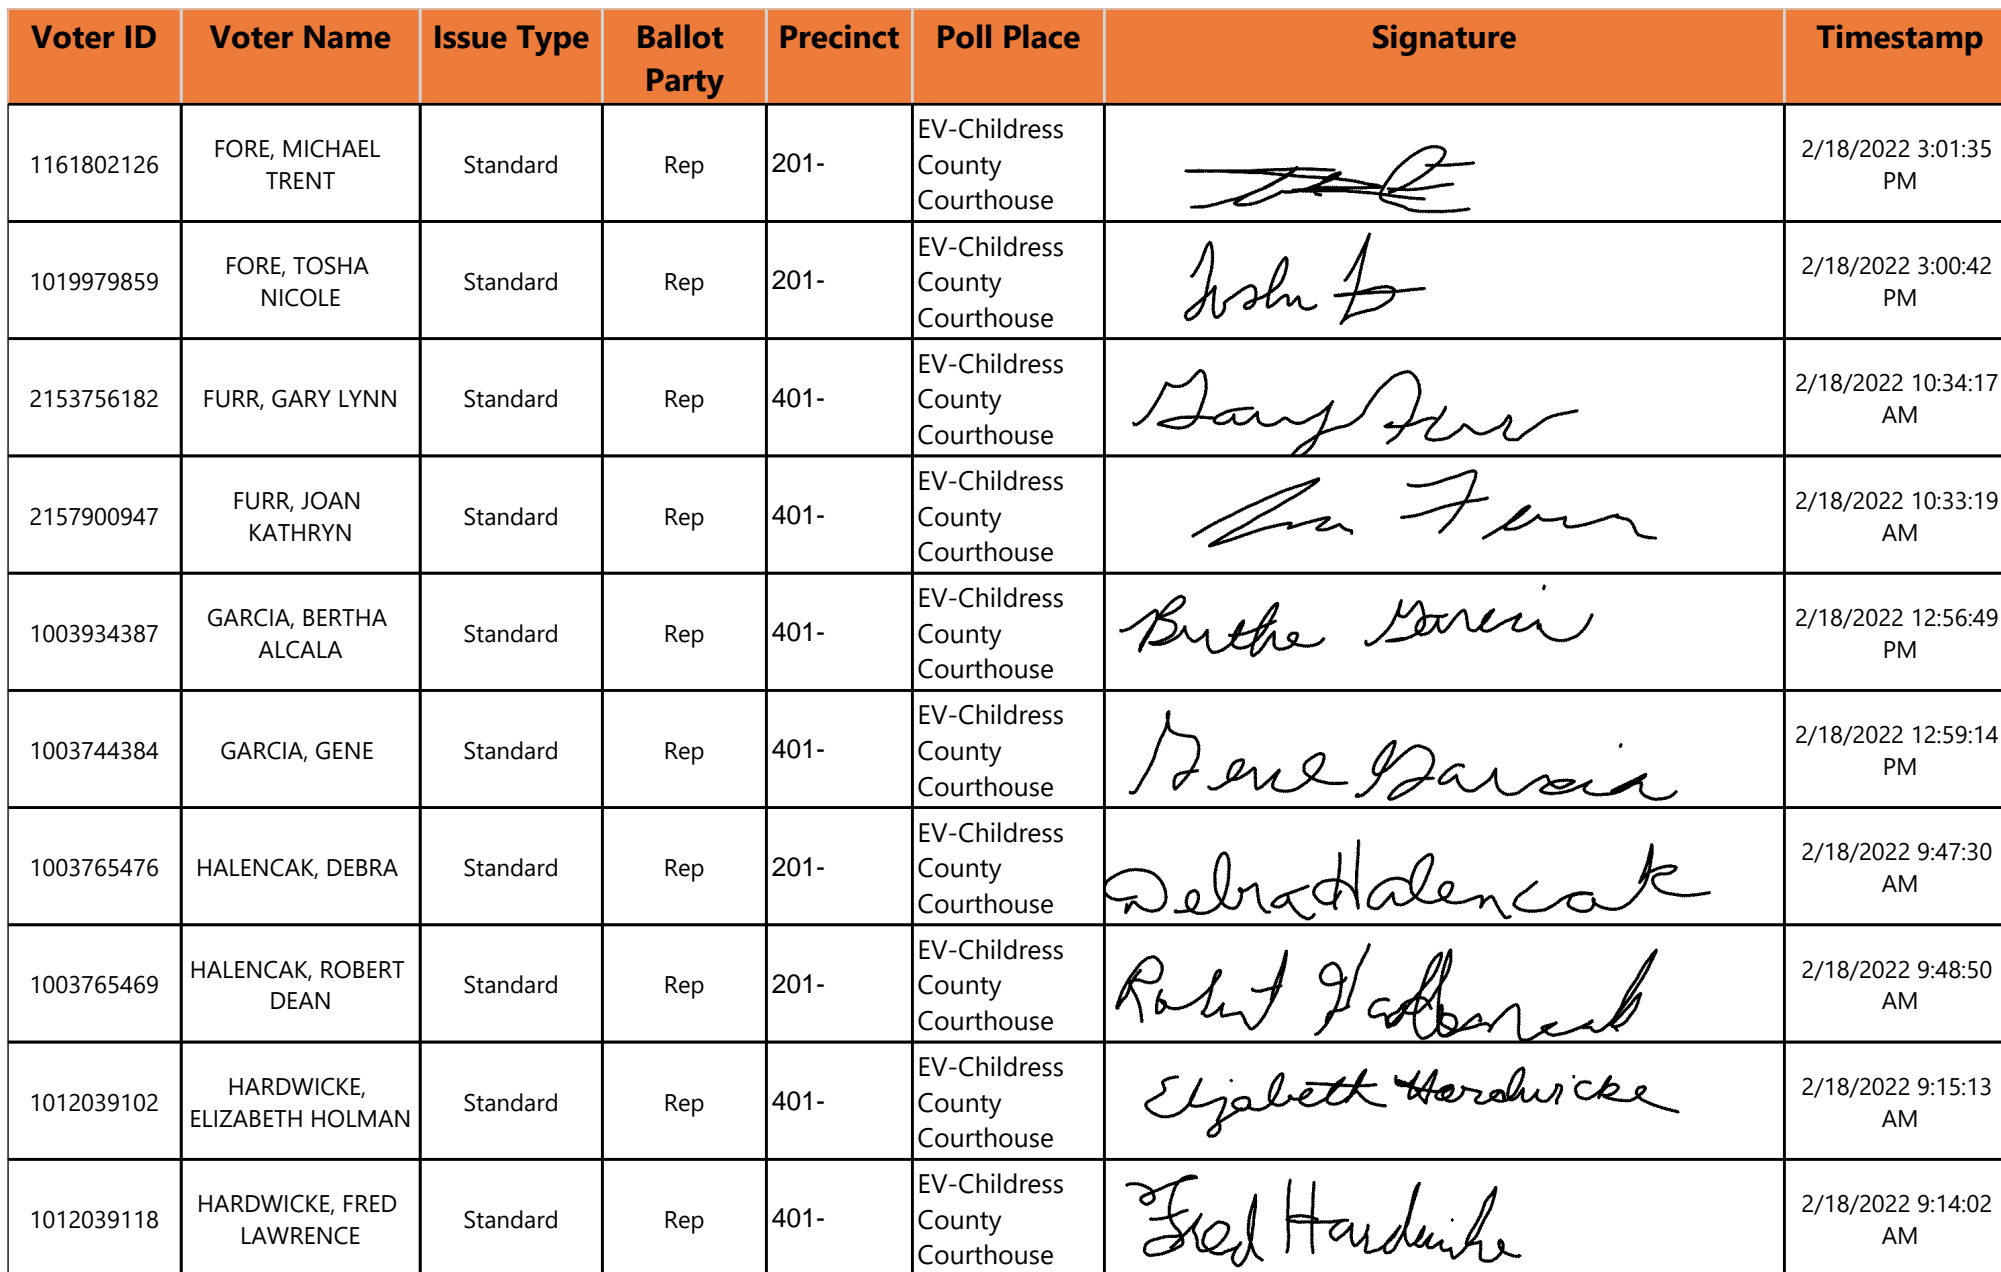 Voter ID Voter Name Issue Type Ballot Party Precinct Poll Place Signature Timestamp
1161802126 FORE, MICHAEL TRENT Standard Rep 201- EV-Childress County Courthouse 2/18/2022 3:01:35 PM
1019979859 FORE, TOSHA NICOLE Standard Rep 201- EV-Childress County Courthouse Tosha 2/18/2022 3:00:42 PM
2153756182 FURR, GARY LYNN Standard Rep 401- EV-Childress County Courthouse Gary Furr 2/18/2022 10:34:17 AM
2157900947 FURR, JOAN KATHRYN Standard Rep 401- EV-Childress County Courthouse Furr 2/18/2022 10:33:19 AM
1003934387 GARCIA, BERTHA ALCALA Standard Rep 401- EV-Childress County Courthouse Bertha Garcia 2/18/2022 12:56:49 PM
1003744384 GARCIA, GENE Standard Rep 401- EV-Childress County Courthouse Gene Garcia 2/18/2022 12:59:14 PM
1003765476 HALENCAK, DEBRA Standard Rep 201- EV-Childress County Courthouse Debra Halencak 2/18/2022 9:47:30 AM
1003765469 HALENCAK, ROBERT DEAN Standard Rep 201- EV-Childress County Courthouse Robert Halencak 2/18/2022 9:48:50 AM
1012039102 HARDWICKE, ELIZABETH HOLMAN Standard Rep 401- EV-Childress County Courthouse Elizabeth Hardwicke 2/18/2022 9:15:13 AM
1012039118 HARDWICKE, FRED LAWRENCE Standard Rep 401- EV-Childress County Courthouse Fred Hardwicke 2/18/2022 9:14:02 AM